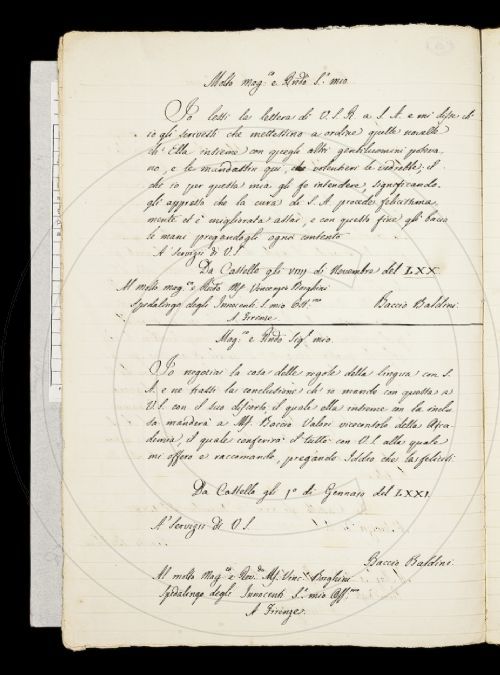 Molto mag.co e Rndo S.r mio
Io lessi la lettera di V. S. R. a S. A. e mi disse ch'
io gli scrivessi che mettessino a ordine quelle
ch' Ella insieme con quegli altri gentiluomini poteva
no, e le mandassin qui, che volentieri le vedrebbe: il
che io per questa mia gli fo intendere, significando
gli appresso che la cura di S. A. procede felicissima
mente et è migliorata assai, e con questo fine gli bacio
le mani pregandogli ogni contento
A' servizi di V. S.
Da Castello gli VIIIJ di Novembre del LXX
Al molto mag.co e Rndo Mf. Vincenzio Borghini
Spedalingo degli Innocenti S. mio Oss.mo
Baccio Baldini
A Firenze
Mag.co e Rndo Sig.r mio.
Io negoziai la cosa delle regole della lingua con S.
A. e ne trassi la conclusione ch' io mando con questa a
V. S. con il suo discorso, il quale ella insieme con la inclu
sa manderà a Mf. Baccio Valori viceconsolo della Acca
demia, il quale conferirà il tutto con V. S. alla quale
mi offero e raccomando, pregando Iddio che la feliciti
Da Castello gli 1.o di Gennaro del LXXI.
A' servizi di V. S.
Baccio Baldini
Al molto Mag.co e Rev.do Mf. Vinc.o Borghini
Spedalingo degli Innocenti S.r mio Oss.mo
A Firenze.